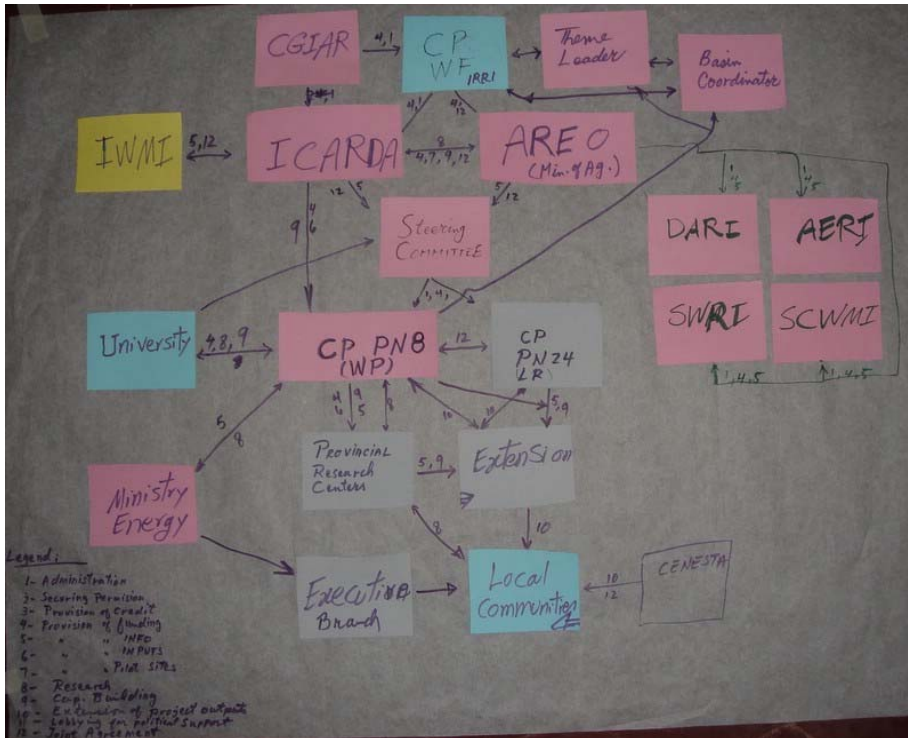 CGIAR
4,1
CP
WF
IRRI
Theme
Leader
Basin
Coordinator
4,1
4,
12
IWMI
5,12
ICARDA
8
4,7,9,12
AREO
(Min. of Ag.)
12 5
5
12
4
5
4
5
9 4
6
Steering
COMMITTEE
DARI
AERI
1,4,
University
4,8,9
CP PN8
(WP)
12
CP
PN24
LR)
SWRI
SCWMI
1,4,5
1,4,5
5
8
4 9
6 5
8
10
10
5,9
Provincial
Research
Centers
5,9
Extension
Ministry
Energy
8
10
Executive
Branch
Local
Communities
10
12
CENESTA
Legend:
1- Administration
2- Securing Permision
3- Provision of Credit
4- Provision of funding
5- " " INFO
6- " " INPUTS
7- " " Pilot Sites
8- Research
9- Cap. Building
10- Extension of project outputs
11- Lobbying for political Support
12- Joint Agreement